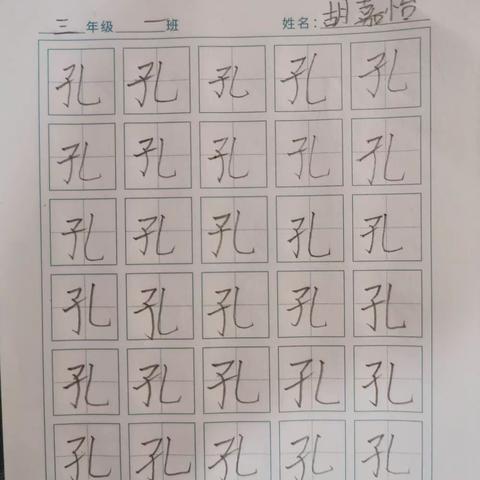 三年级一班 姓名:胡嘉怡
孔 孔 孔 孔 孔
孔 孔 孔 孔 孔
孔 孔 孔 孔 孔
孔 孔 孔 孔 孔
孔 孔 孔 孔 孔
孔 孔 孔 孔 孔